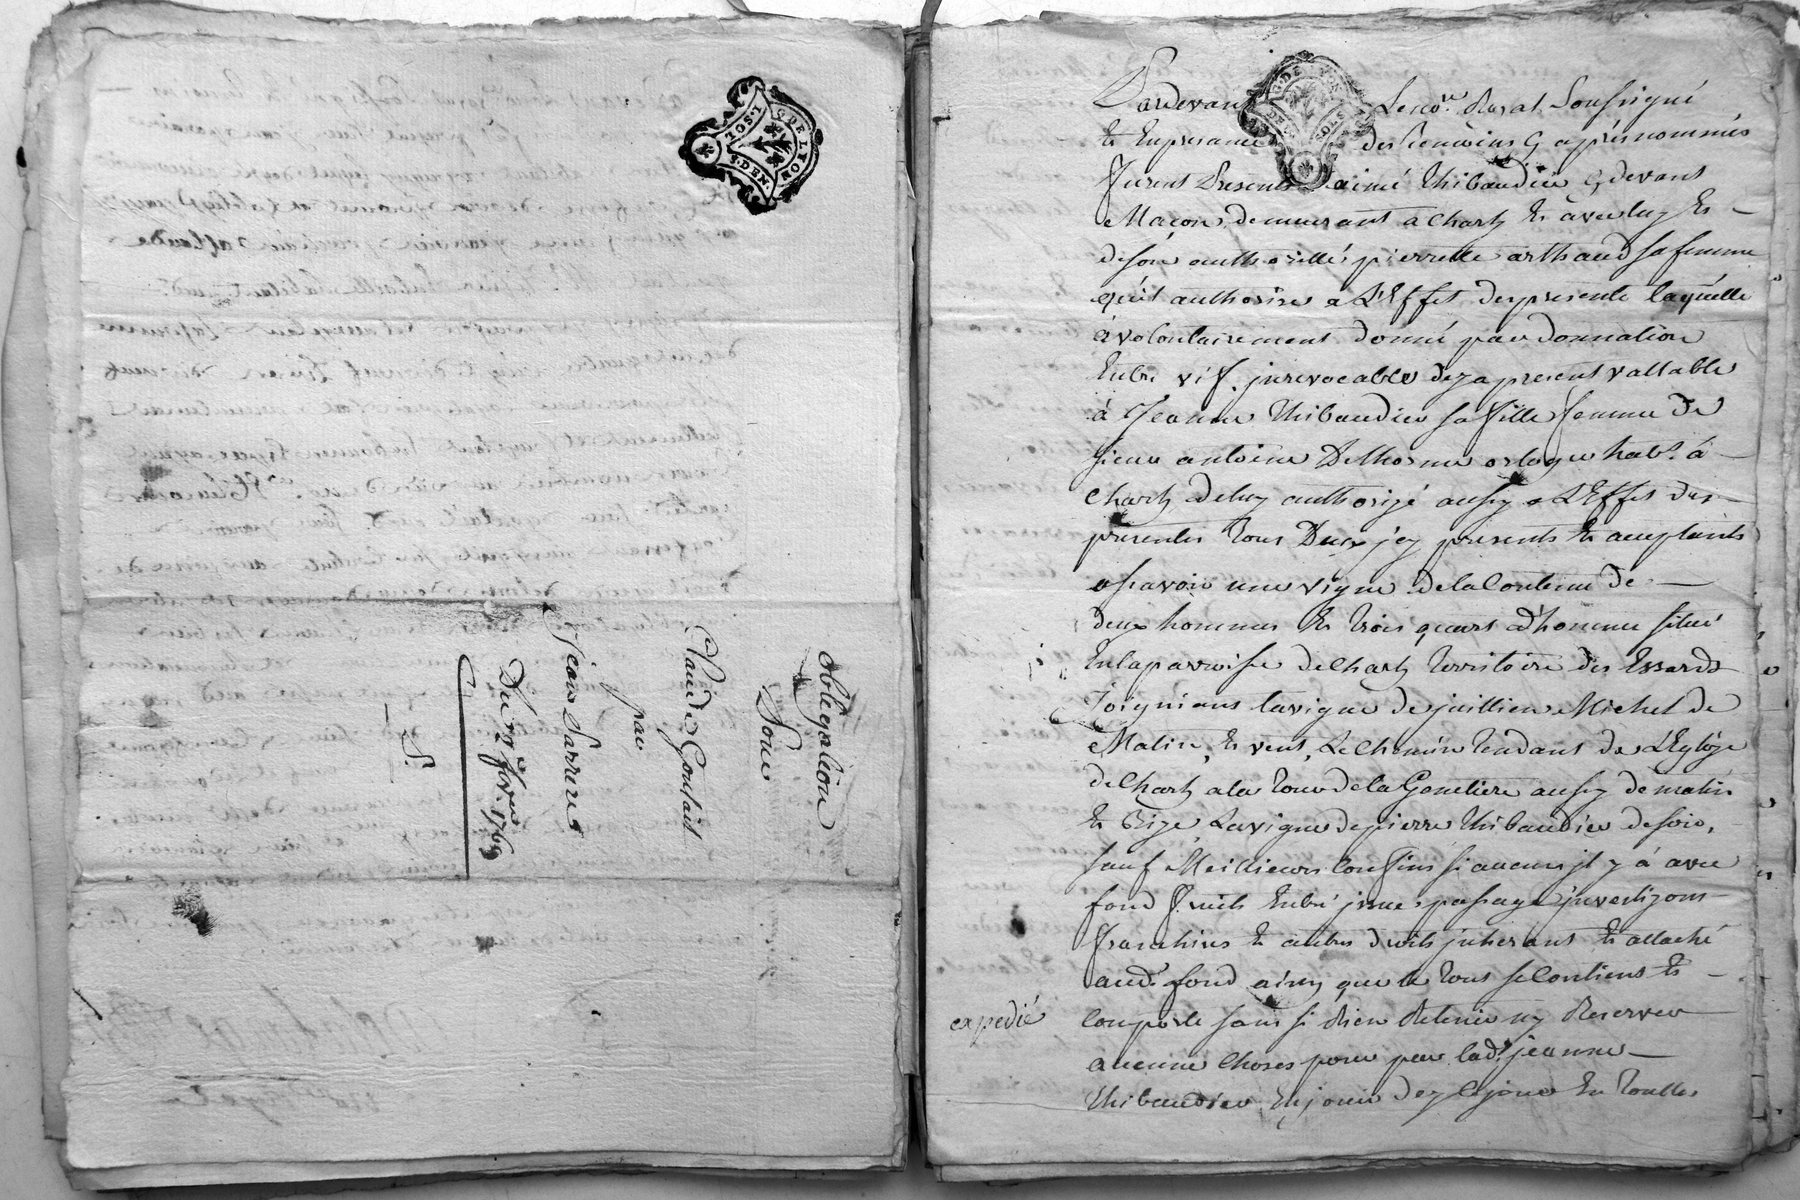 G. DE LYON
1. SOL.
8. DEN.
obligation
Pour
Claude Goutail
par
Jean Sarrire
Du 2e fev. 1769
S.
G. DE LYON
DEUX SOLS
Pardevant Le no.re Royal Soussigné
Et En presance des temoins cy apres nommés
furent Presents aimé Thibaudier cy devant
Maçon demeurant a Charly Et avec luy Et
de son authorité pierrette arthaud sa femme
qu'il authorise a L'Effet des presente laquelle
a volontairement donné par donnation
Entre vif jrrevocable dez a present vallable
à Jeanne Thibaudier sa fille femme de
sieur antoine Delhorme orloger hab.t à
Charly de luy authorizé aussy a L'Effet des
presentes tous Deux jcy presents Et acceptants
assavoir une vigne de la Contenue de
deux hommes Et trois quart d'homme situé
En la parroisse de Charly territoire des Essards
Joignant la vigne de jullien Michel de
Matin, Et vent, Le Chemin tendant de L'Eglize
de Charly a la tour de la Gonetiere aussy de matin
Et Bize La vigne de pierre Thibaudier de soir,
sauf Meillieurs Confins si aucuns jl y à avec
fond fruits Entré jssue passage jnvestizons
franchises Et autres droits jnherant Et attaché
aud. fond ainsy que le tout se Contient Et
expedié
Comporte sans si Rien Retenir ny Reserver
aucune Choses pour par lad. jeanne
Thibaudier En jouir dez Ce jour En toutes